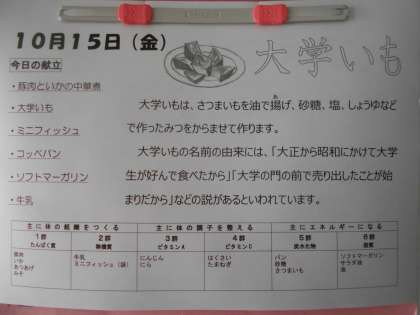 10月15日（金）
大学いも
今日の献立
・豚肉といかの中華煮
・大学いも
・ミニフィッシュ
・コッペパン
・ソフトマーガリン
・牛乳
大学いもは、さつまいもを油で揚げ、砂糖、塩、しょうゆなど
で作ったみつをからませて作ります。
大学いもの名前の由来には、「大正から昭和にかけて大学
生が好んで食べたから」「大学の門の前で売り出したことが始
まりだから」などの説があるといわれています。
主に体の組織をつくる 主に体の調子を整える 主にエネルギーになる
1群 2群 3群 4群 5群 6群
たんぱく質 無機質 ビタミンA ビタミンC 炭水化物 脂質
豚肉 牛乳 にんじん はくさい パン ソフトマーガリン
いか ミニフィッシュ（袋） にら たまねぎ 砂糖 サラダ油
あつあげ さつまいも 油
みそ